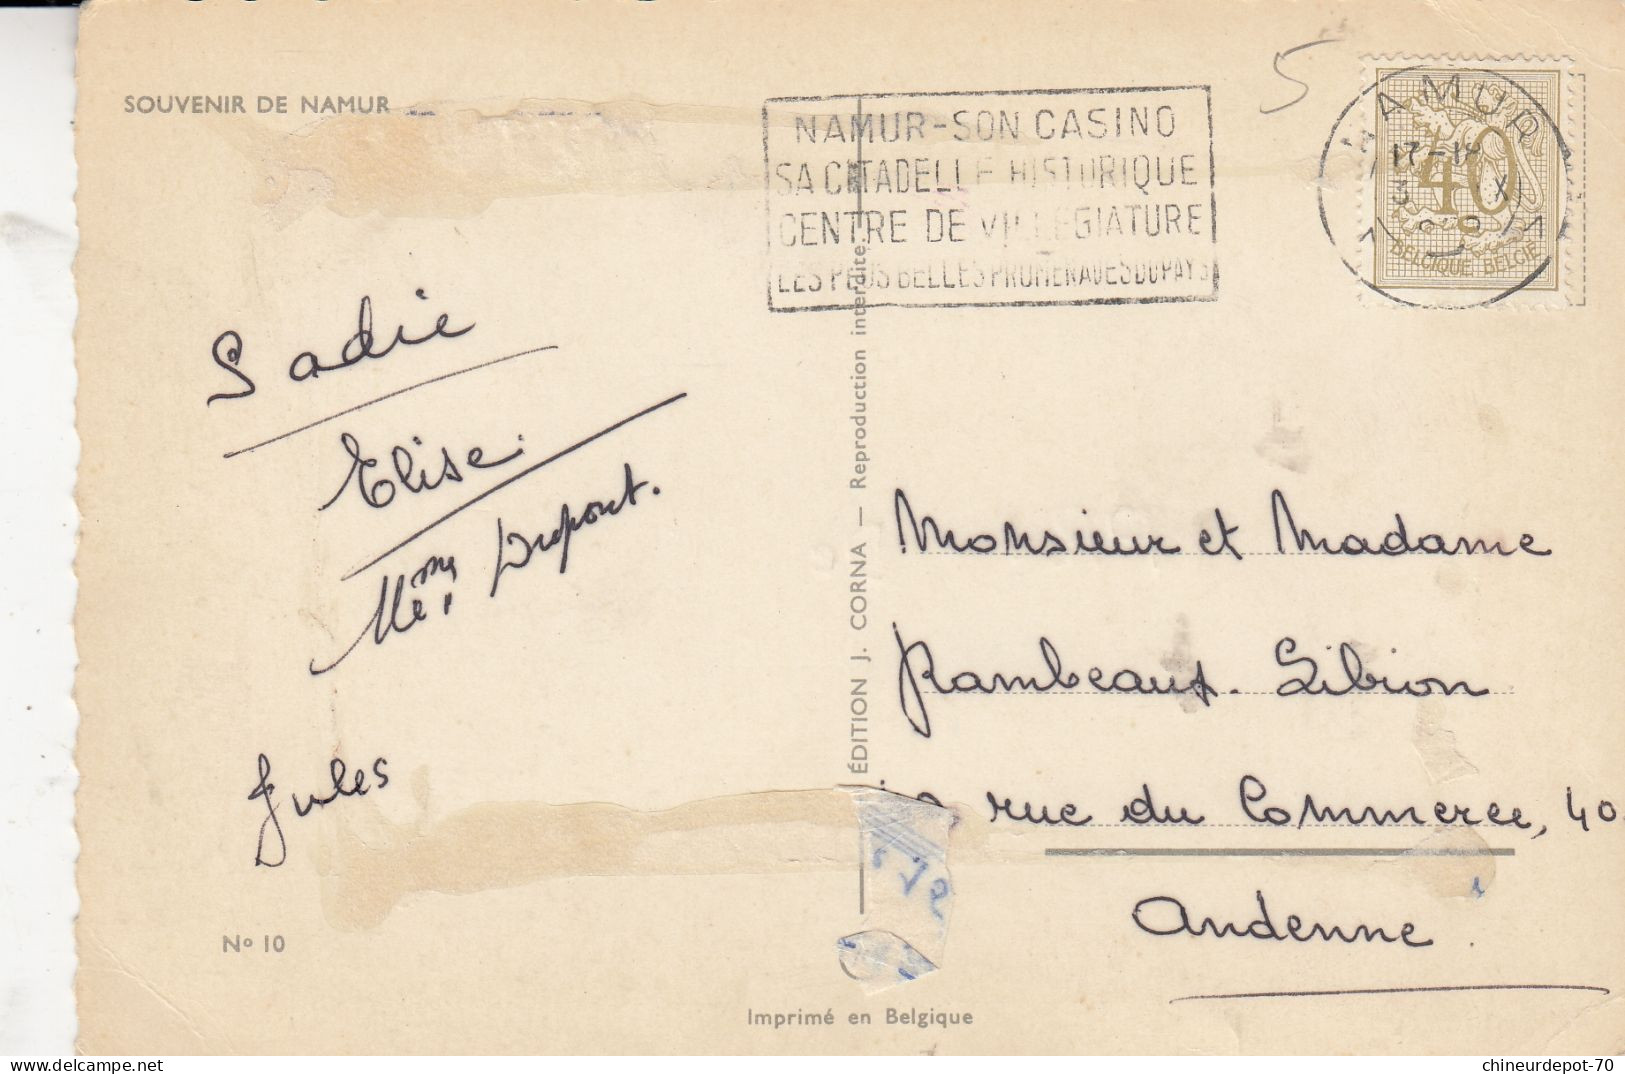 SOUVENIR DE NAMUR
5
NAMUR-SON CASINO
SA CITADELLE HISTORIQUE
CENTRE DE VILLEGIATURE
LES PLUS BELLES PROMENADES DU PAYS
NAMUR
17-18
40
BELGIQUE BELGIË
Sadie
Elise
Dupont.
Jules
ÉDITION J. CORNA — Reproduction interdite.
Monsieur et Madame
Rambeaux. Libion
rue du Commerce, 40
Andenne.
No 10
Imprimé en Belgique
chineurdepot-70